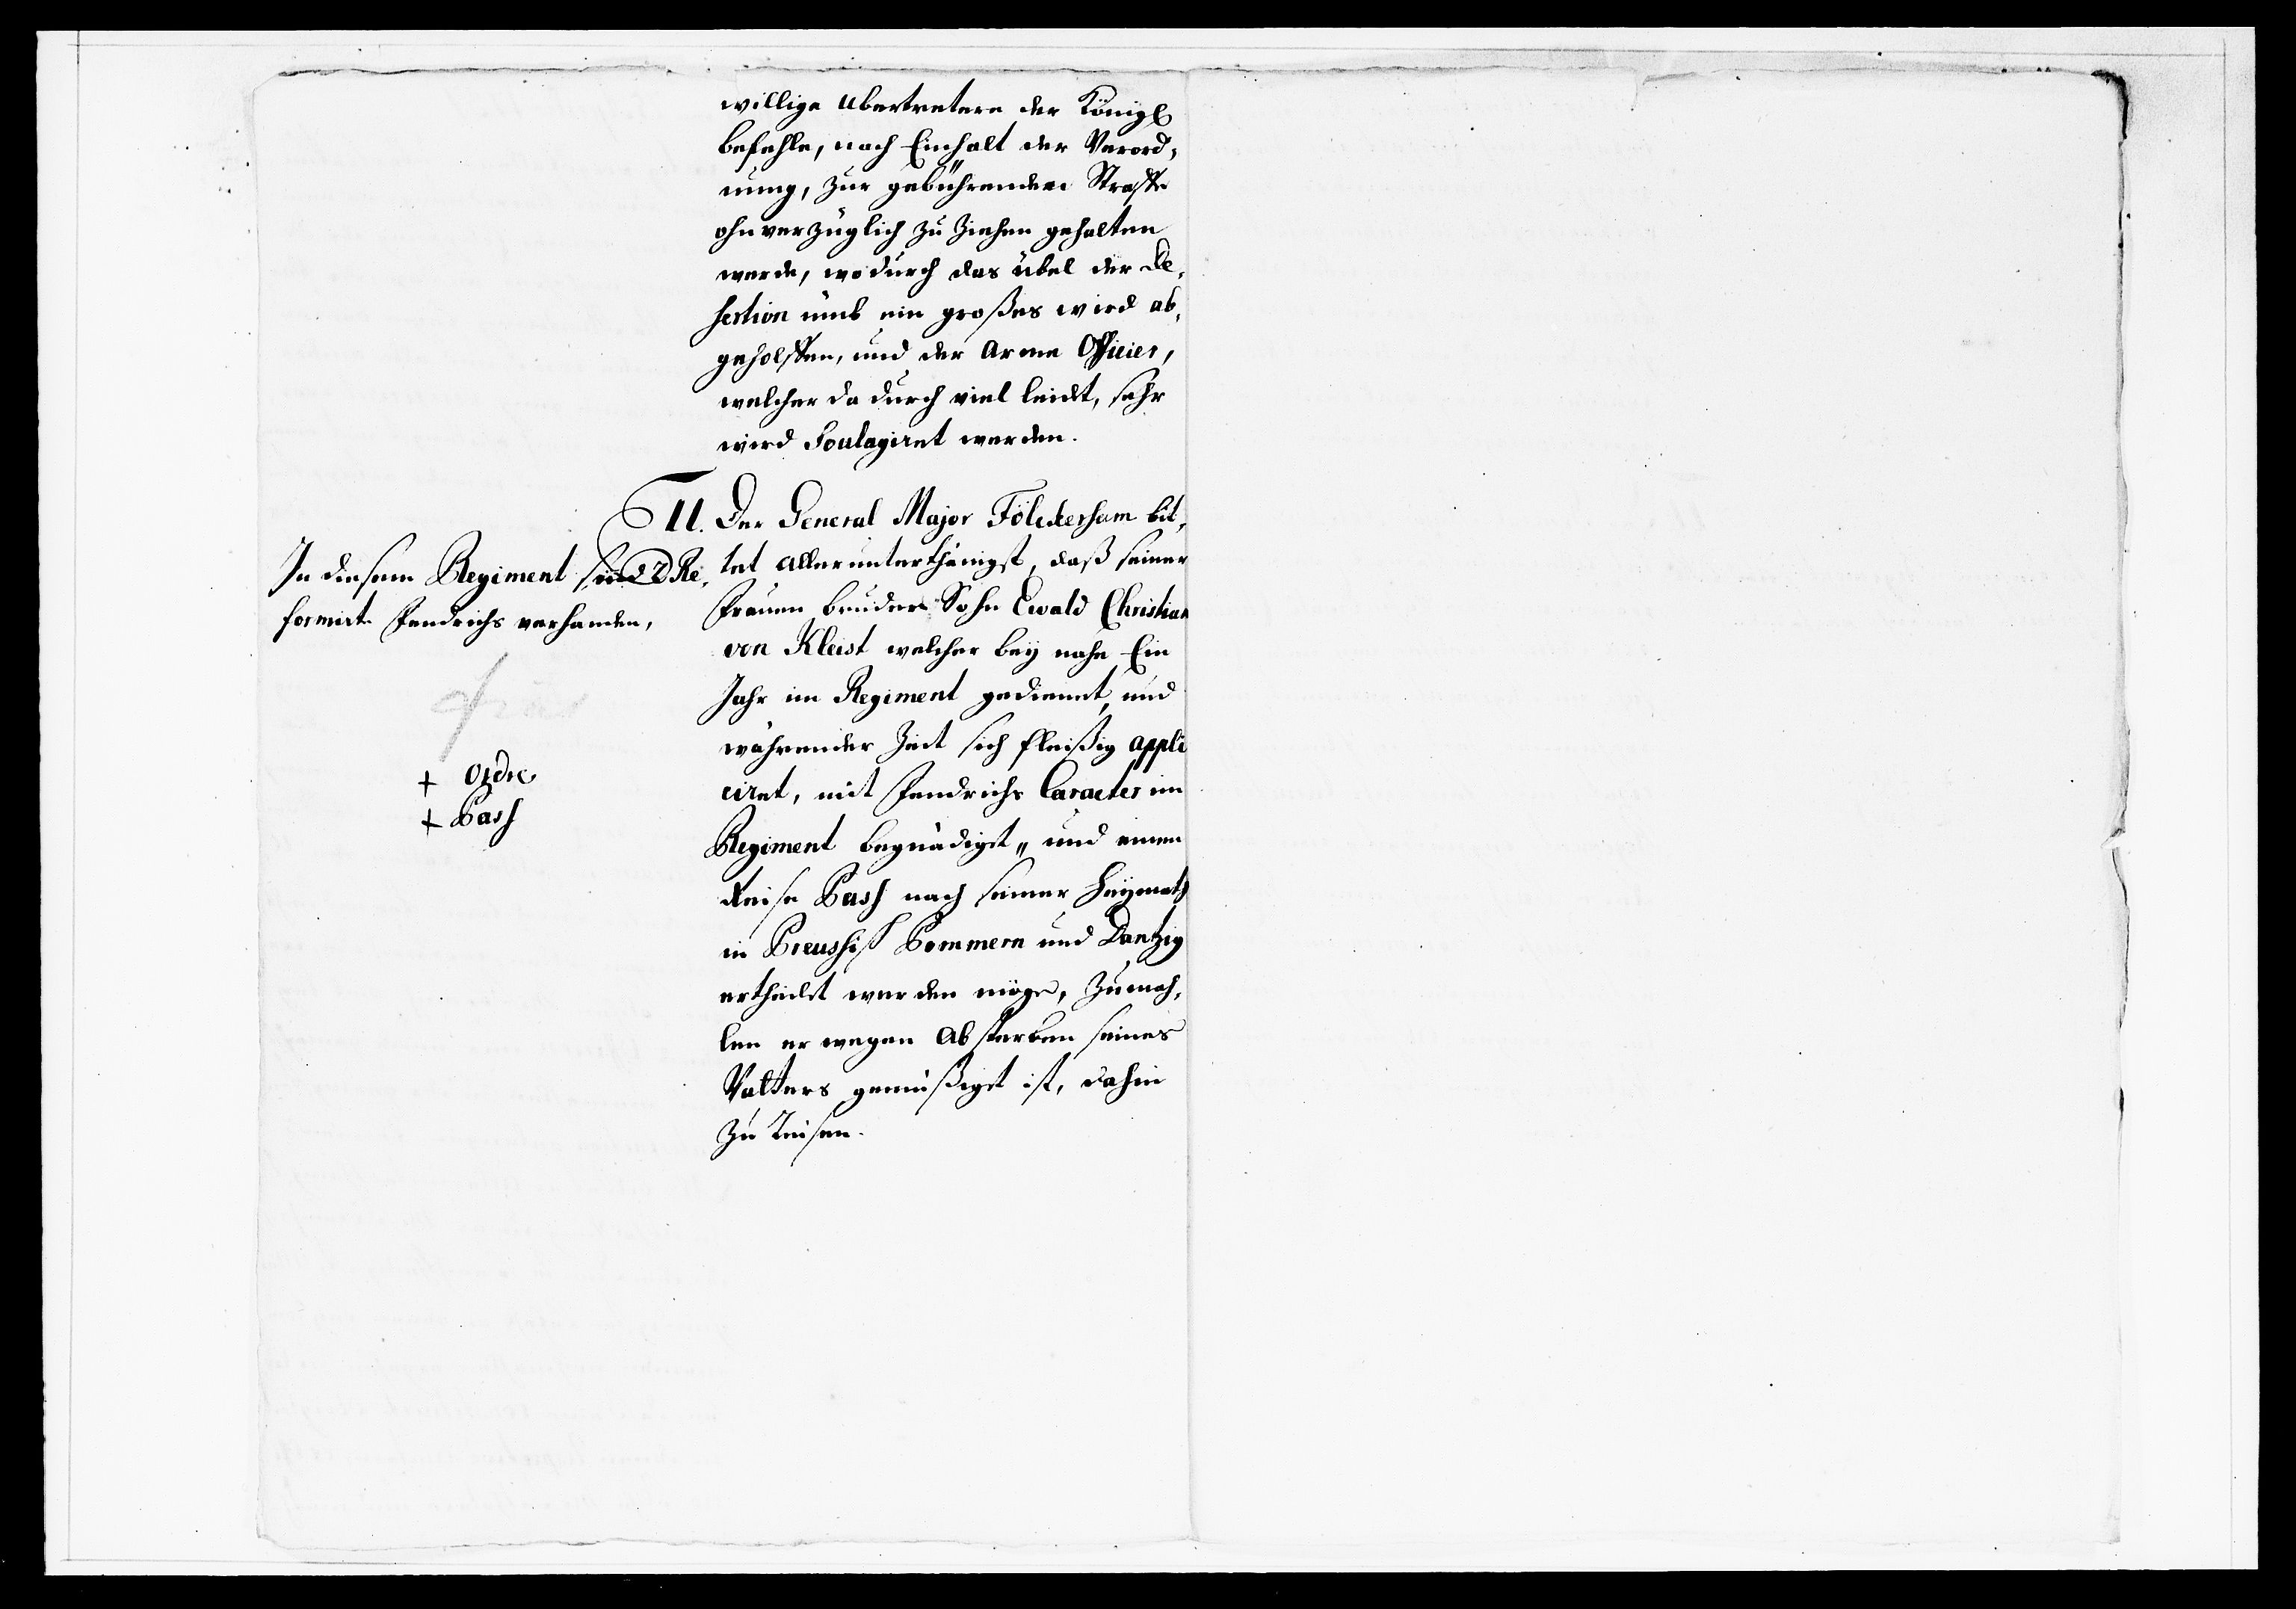 willige ubertretere der Königl
befehle, nach Einhalt der Verord,
nung, zur gebührenden Straffe
ohnverzüglich zu ziehen gehalten
werde, wodurch das übel der De,
sertion umb ein großes wird ab,
geholffen, und der arme Officier,
welcher dadurch viel leidet, sehr
wird Soulagiret werden.
11. Der General Major Fölckersham bit,
tet allerunterthänigst, daß seiner
frauen bruders Sohn Ewald Christian
von Kleist welcher bey nahe Ein
Jahr im Regiment gedienet, und
währender Zeit sich fleißig appli
ciret, mit Fendrichs Caracter im
Regiment begnädiget, und einen
Reise Pass nach seiner Heymath
in Preussis Pommern und Dantzig
ertheilet werden möge, zumah,
len er wegen absterben seines
Vatters gemüßiget ist, dahin
zu reisen.
In diesem Regiment sind 2 Re,
formirte Fendrichs verhanden,
+ Ordre
+ Pass